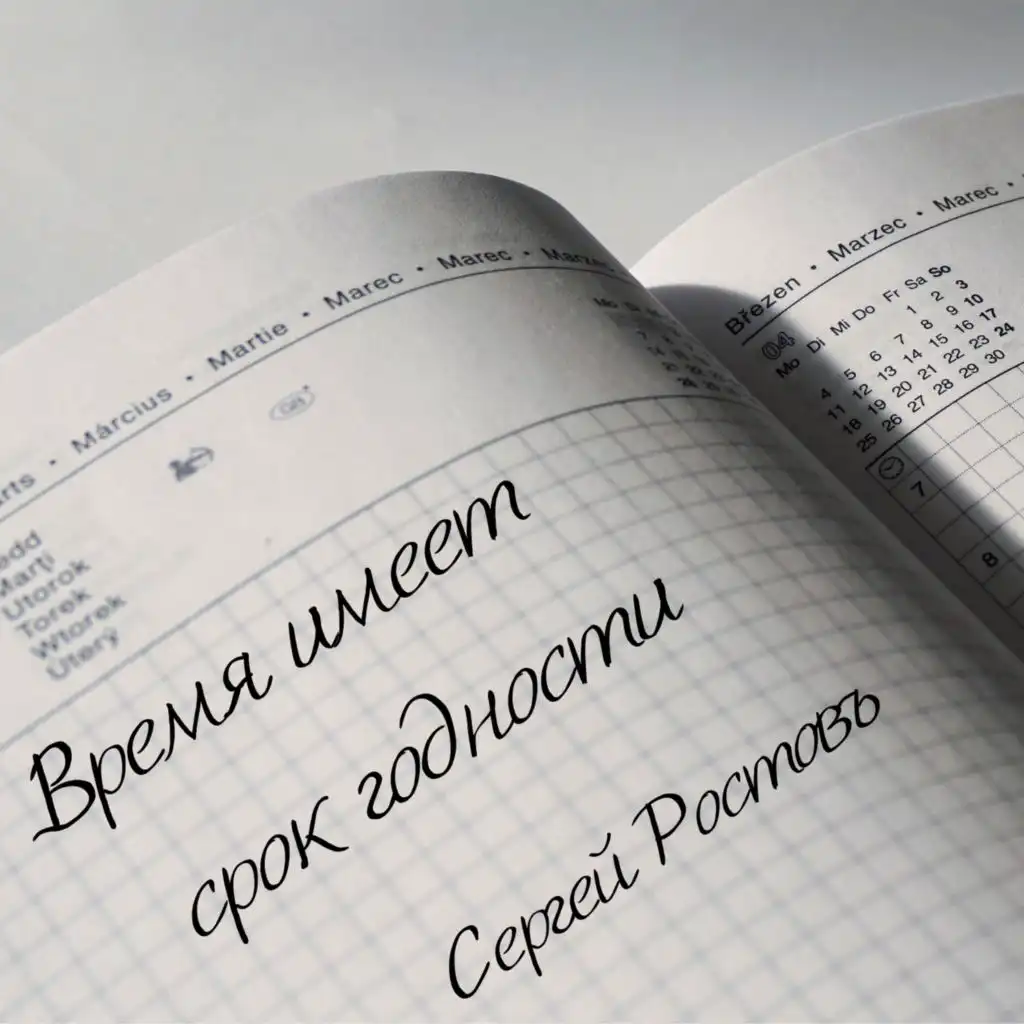 Březen • Marzec • Marec •
04
Mo Di Mi Do Fr Sa So
1 2 3
4 5 6 7 8 9 10
11 12 13 14 15 16 17
18 19 20 21 22 23 24
25 26 27 28 29 30
7
8
Március • Martie • Marec • Marec • Marzec
Utorok
Torek
Wtorek
Úterý
Время имеет
срок годности
Сергей Ростовъ